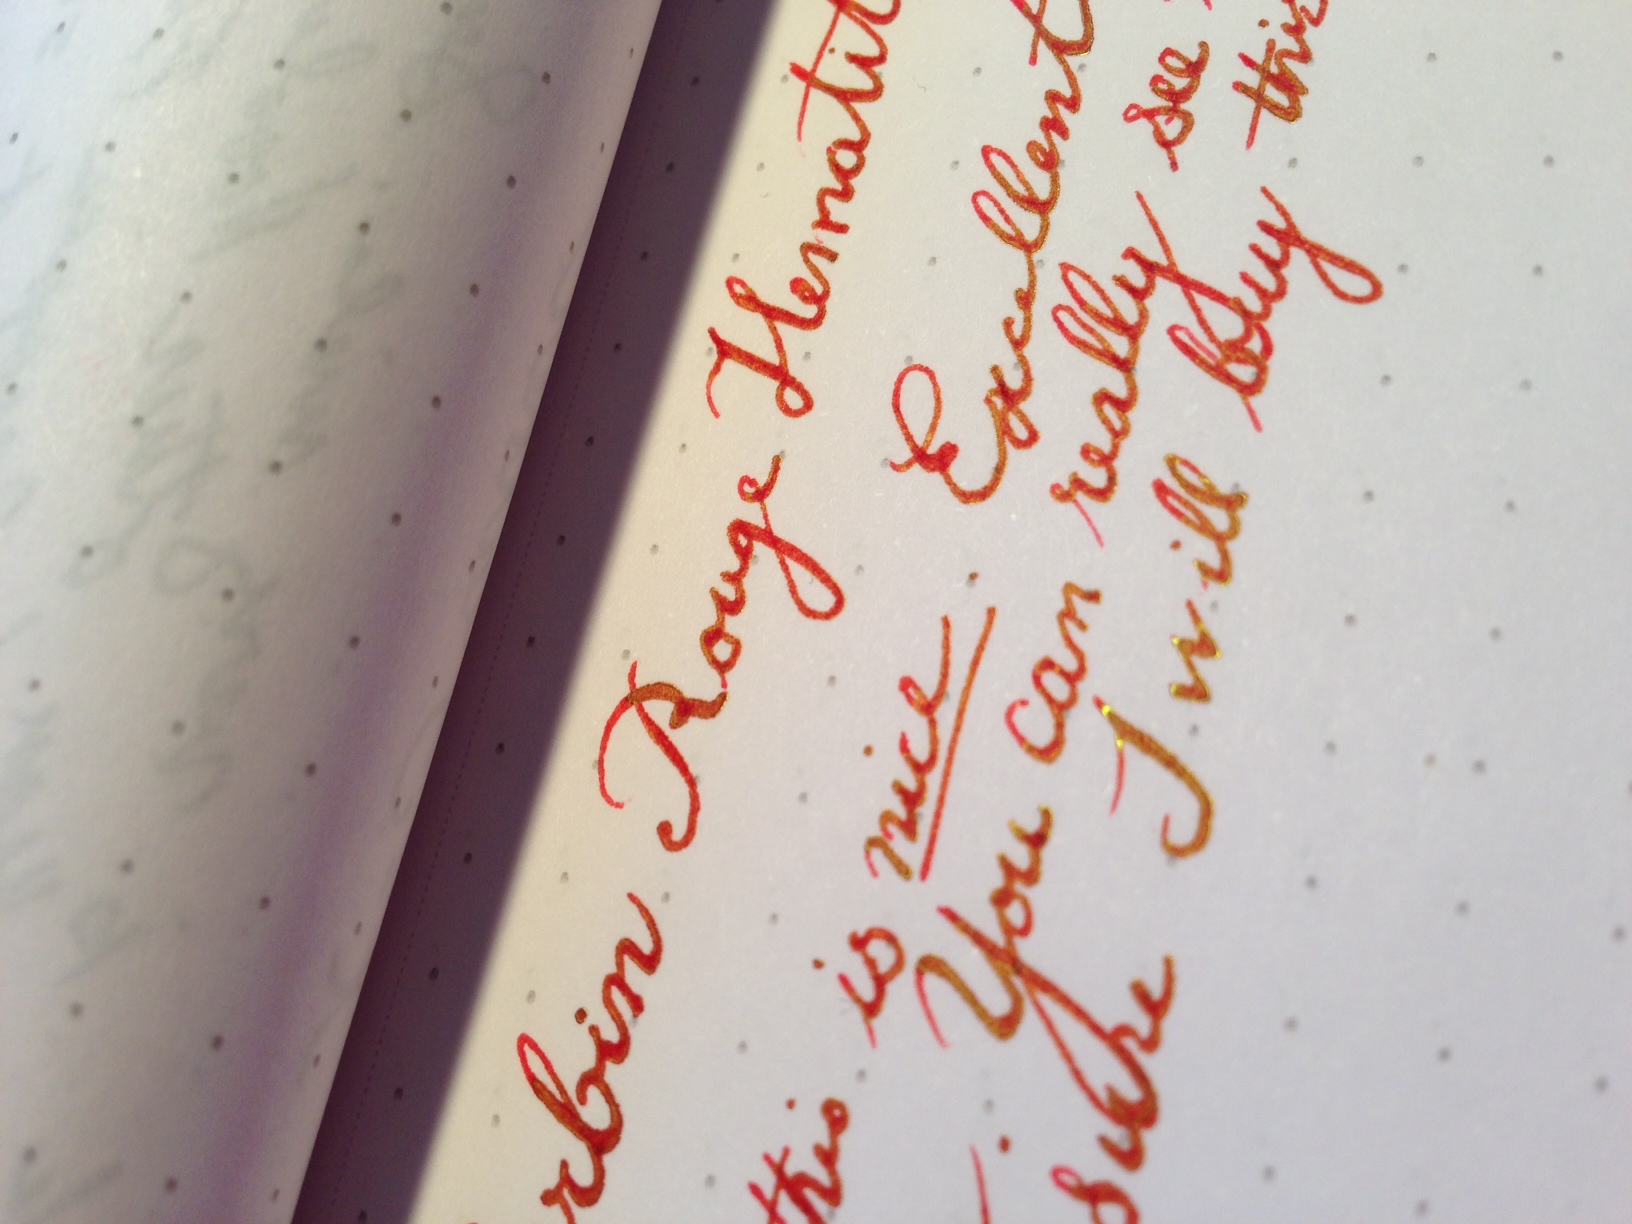 rbin Rouge Hematit
this is nice. Excellent
You can really see
sure I will buy thi